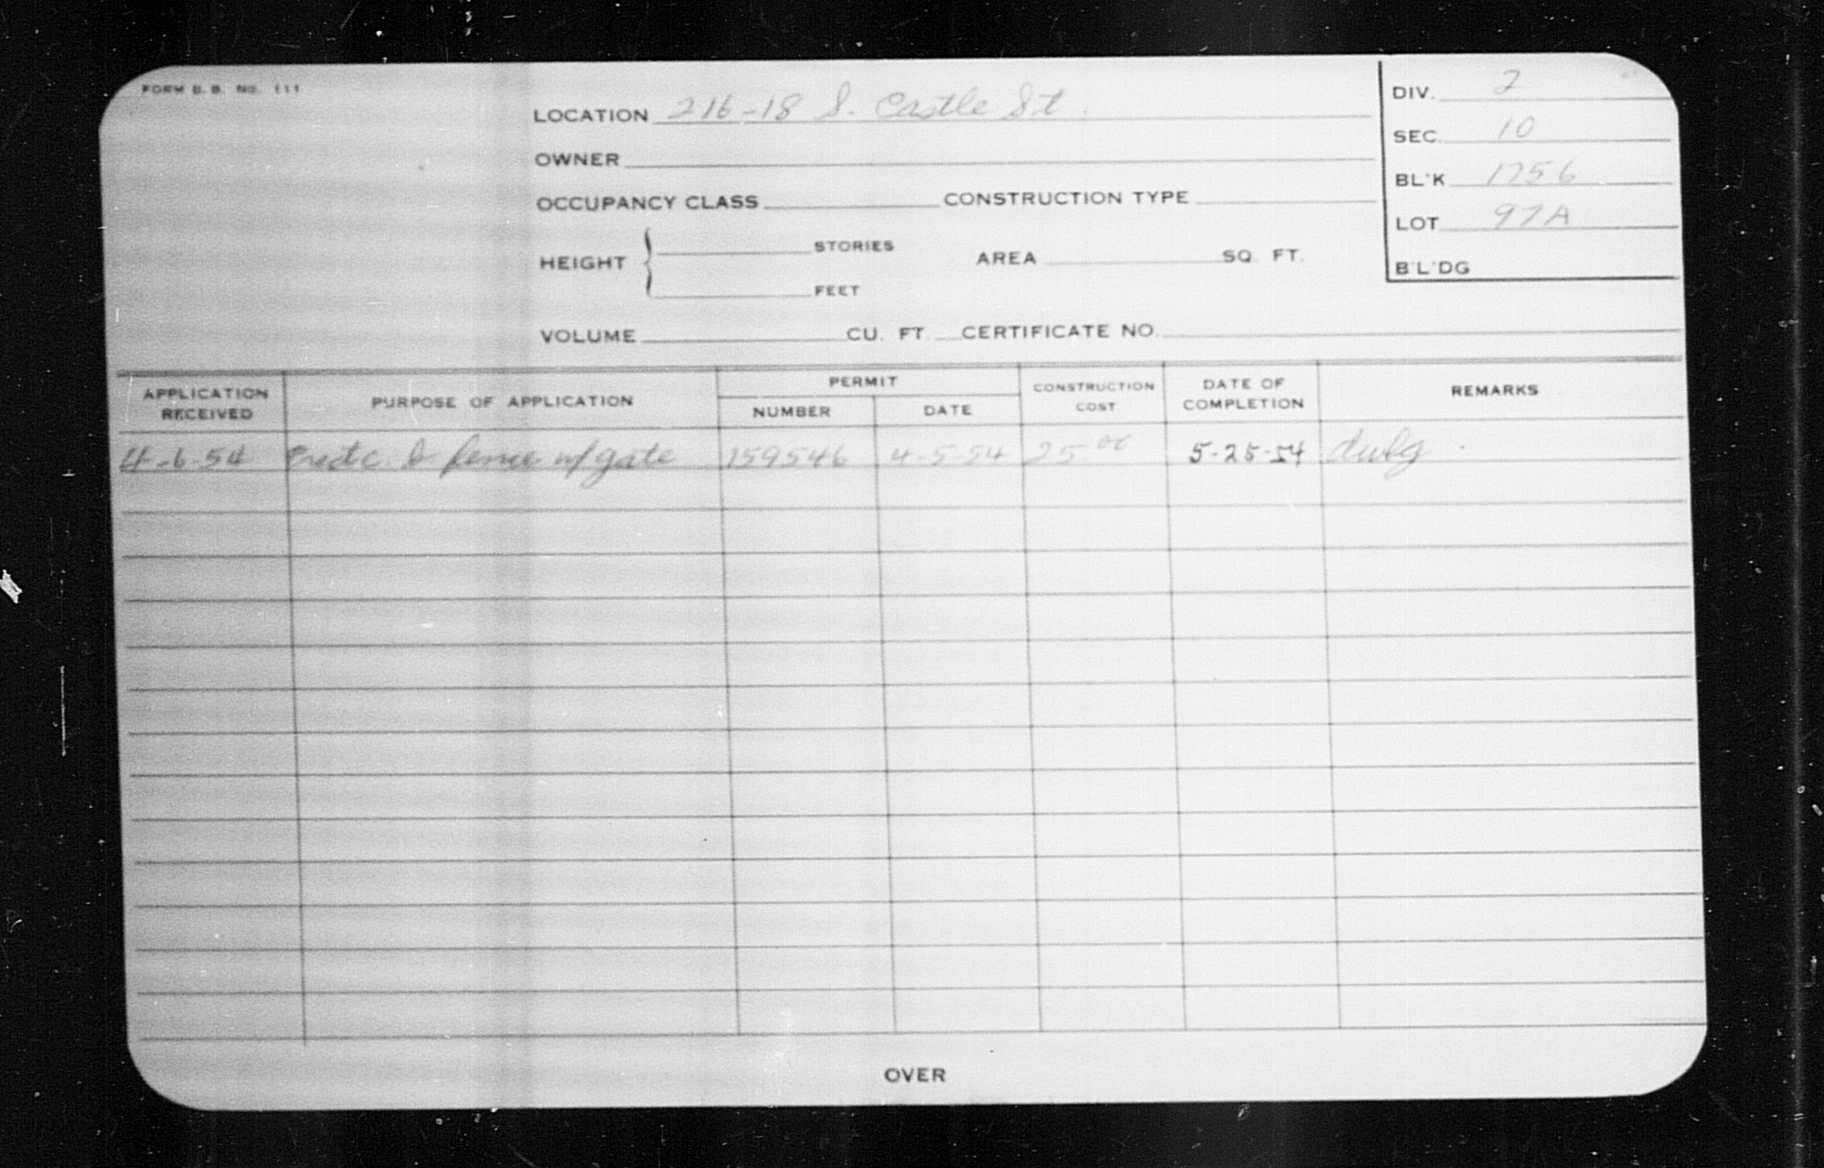 FORM B. B. No. 111
LOCATION 216-18 S. Castle St.
DIV. 2
OWNER
SEC. 10
OCCUPANCY CLASS CONSTRUCTION TYPE
BL'K 1756
HEIGHT STORIES AREA SQ. FT.
LOT 97A
FEET
B'L'DG
VOLUME CU. FT. CERTIFICATE NO.
APPLICATION RECEIVED PURPOSE OF APPLICATION PERMIT NUMBER DATE CONSTRUCTION COST DATE OF COMPLETION REMARKS
4-6-54 fence w/gate 159546 4-5-54 25.00 5-25-54 dwlg.
OVER